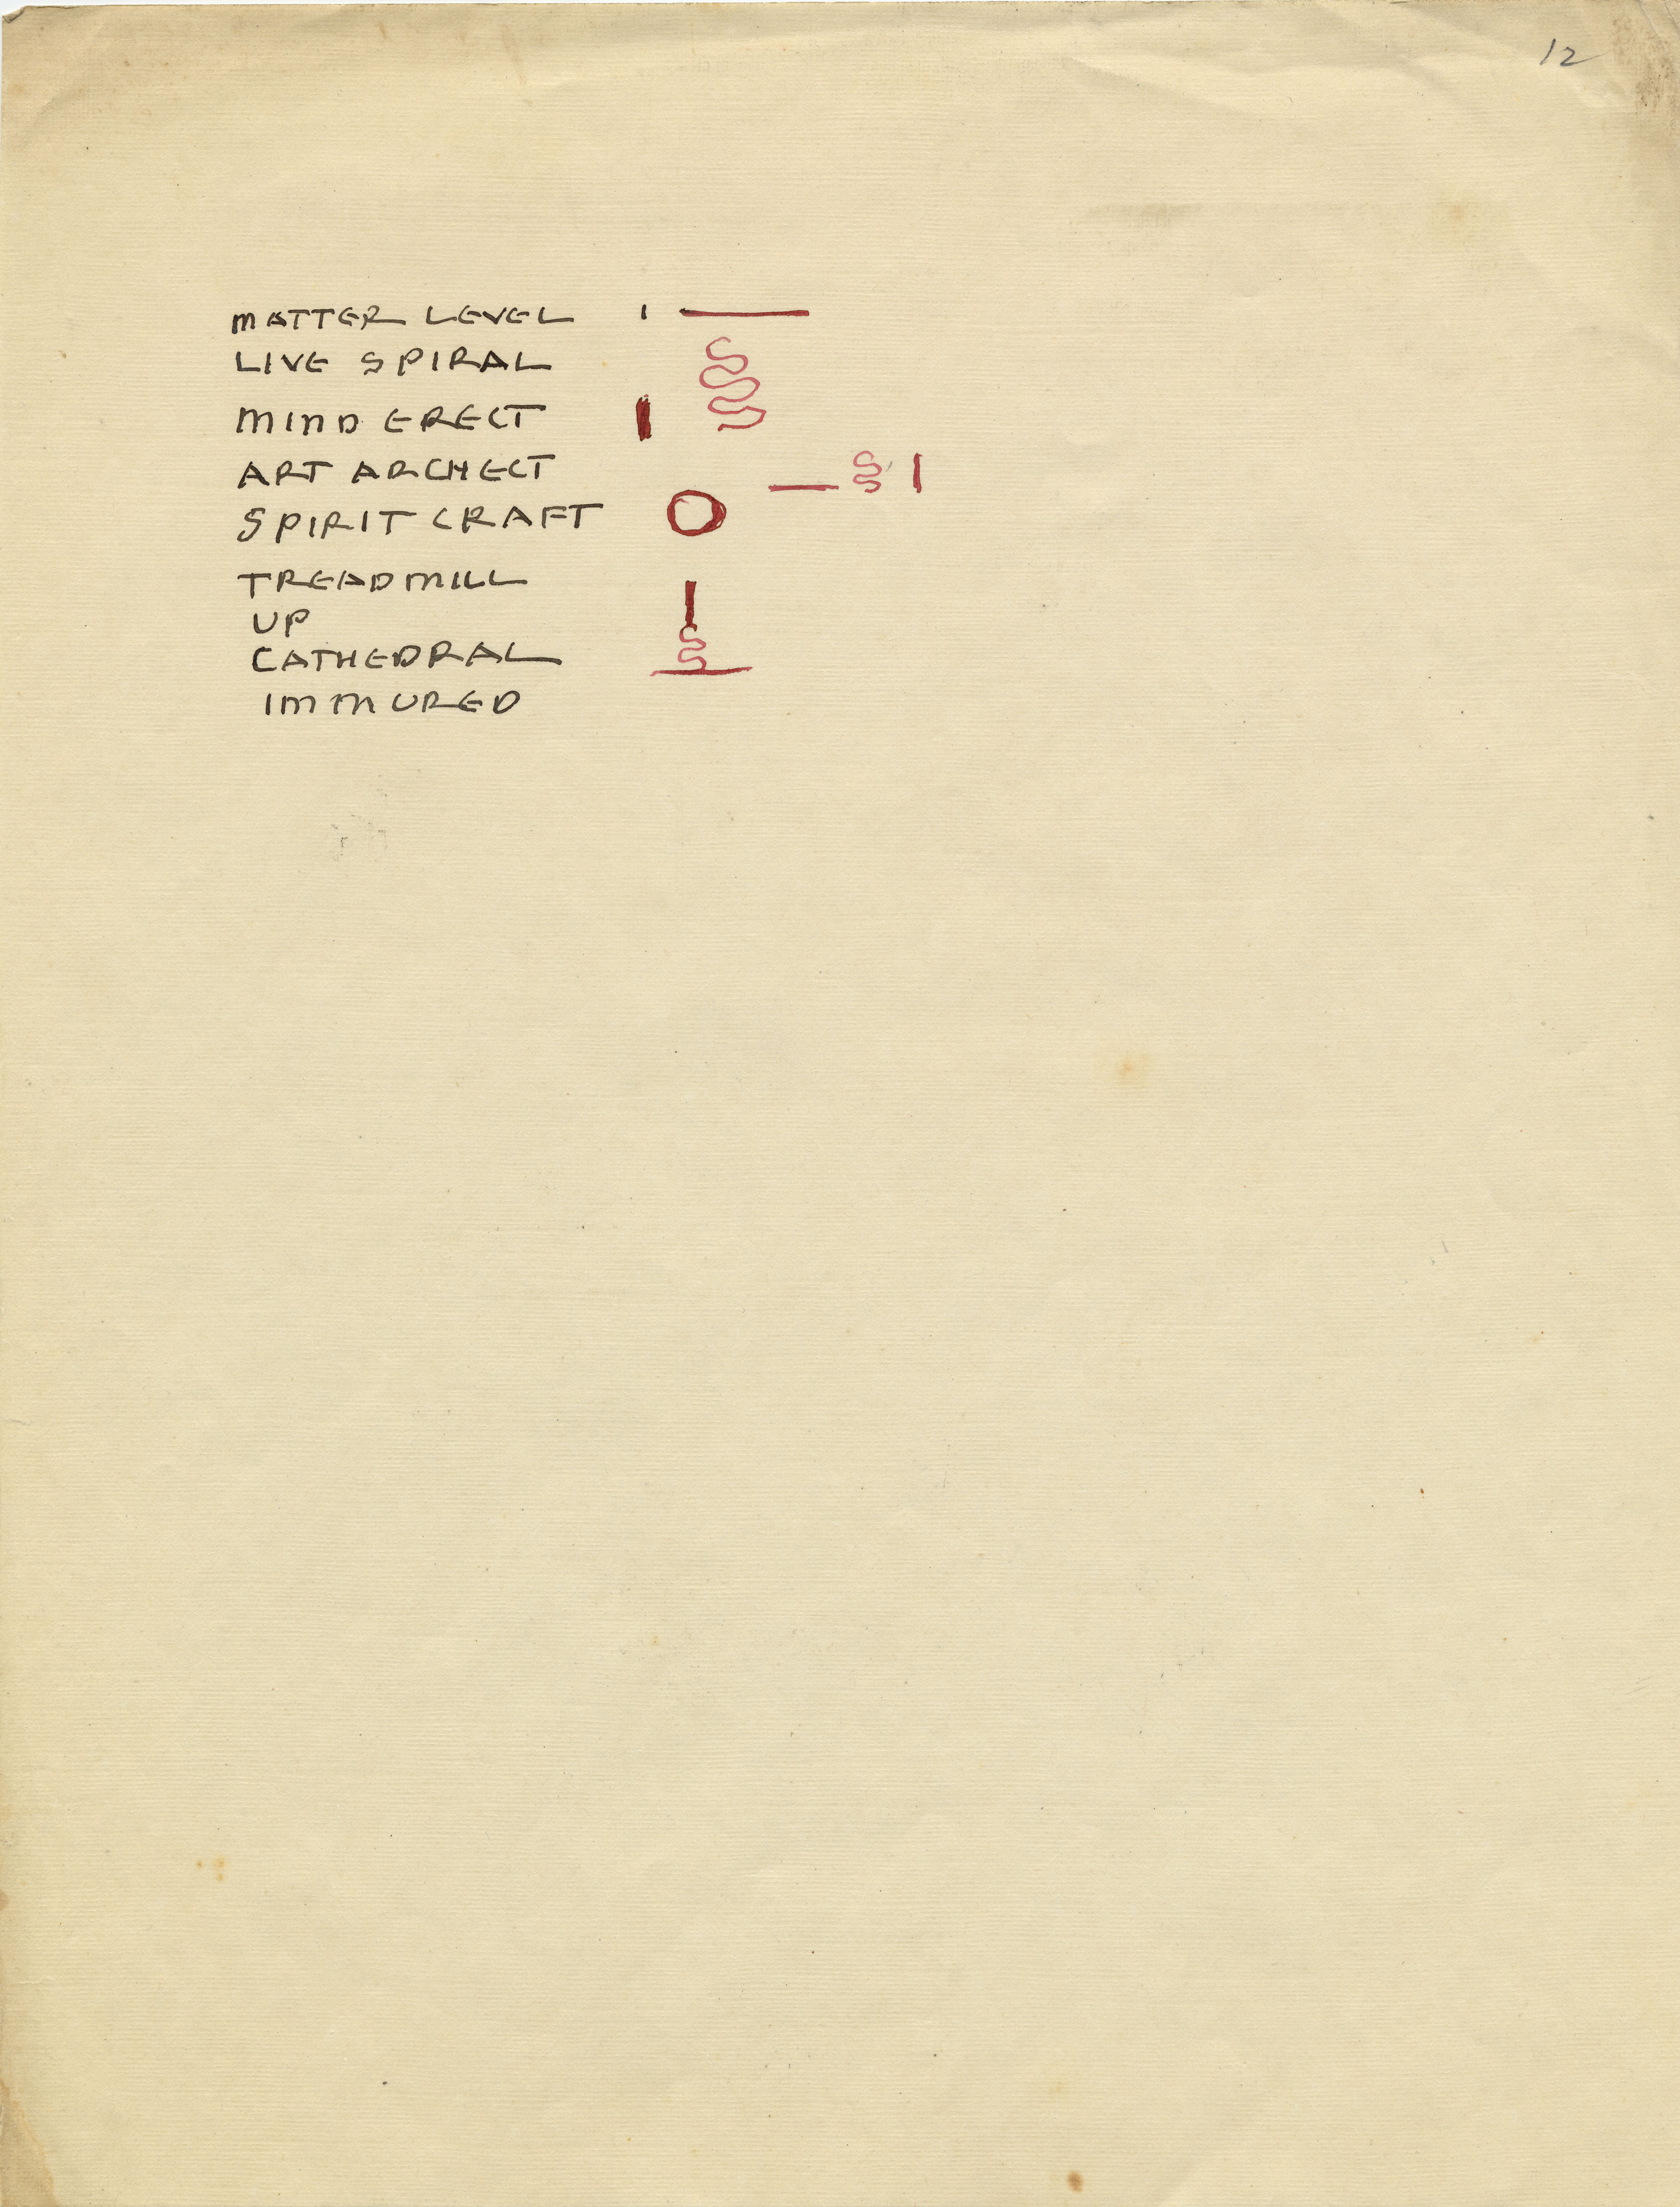 12
MATTER LEVEL
LIVE SPIRAL
MIND ERECT
ART ARCHECT
SPIRIT CRAFT
TREADMILL
UP
CATHEDRAL
IMMURED